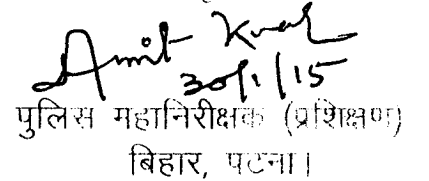 Amit Kumar
30/1/15
पुलिस महानिरीक्षक (प्रशिक्षण)
बिहार, पटना।